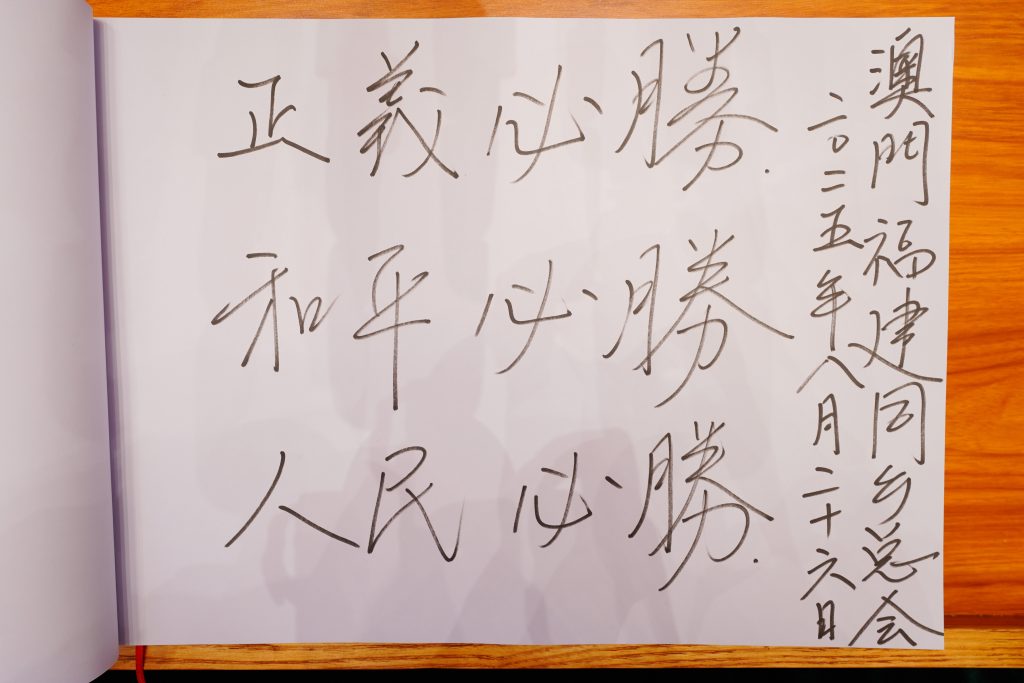 正義必勝.
和平必勝
人民必勝.
澳門福建同乡总会
二〇二五年八月二十六日